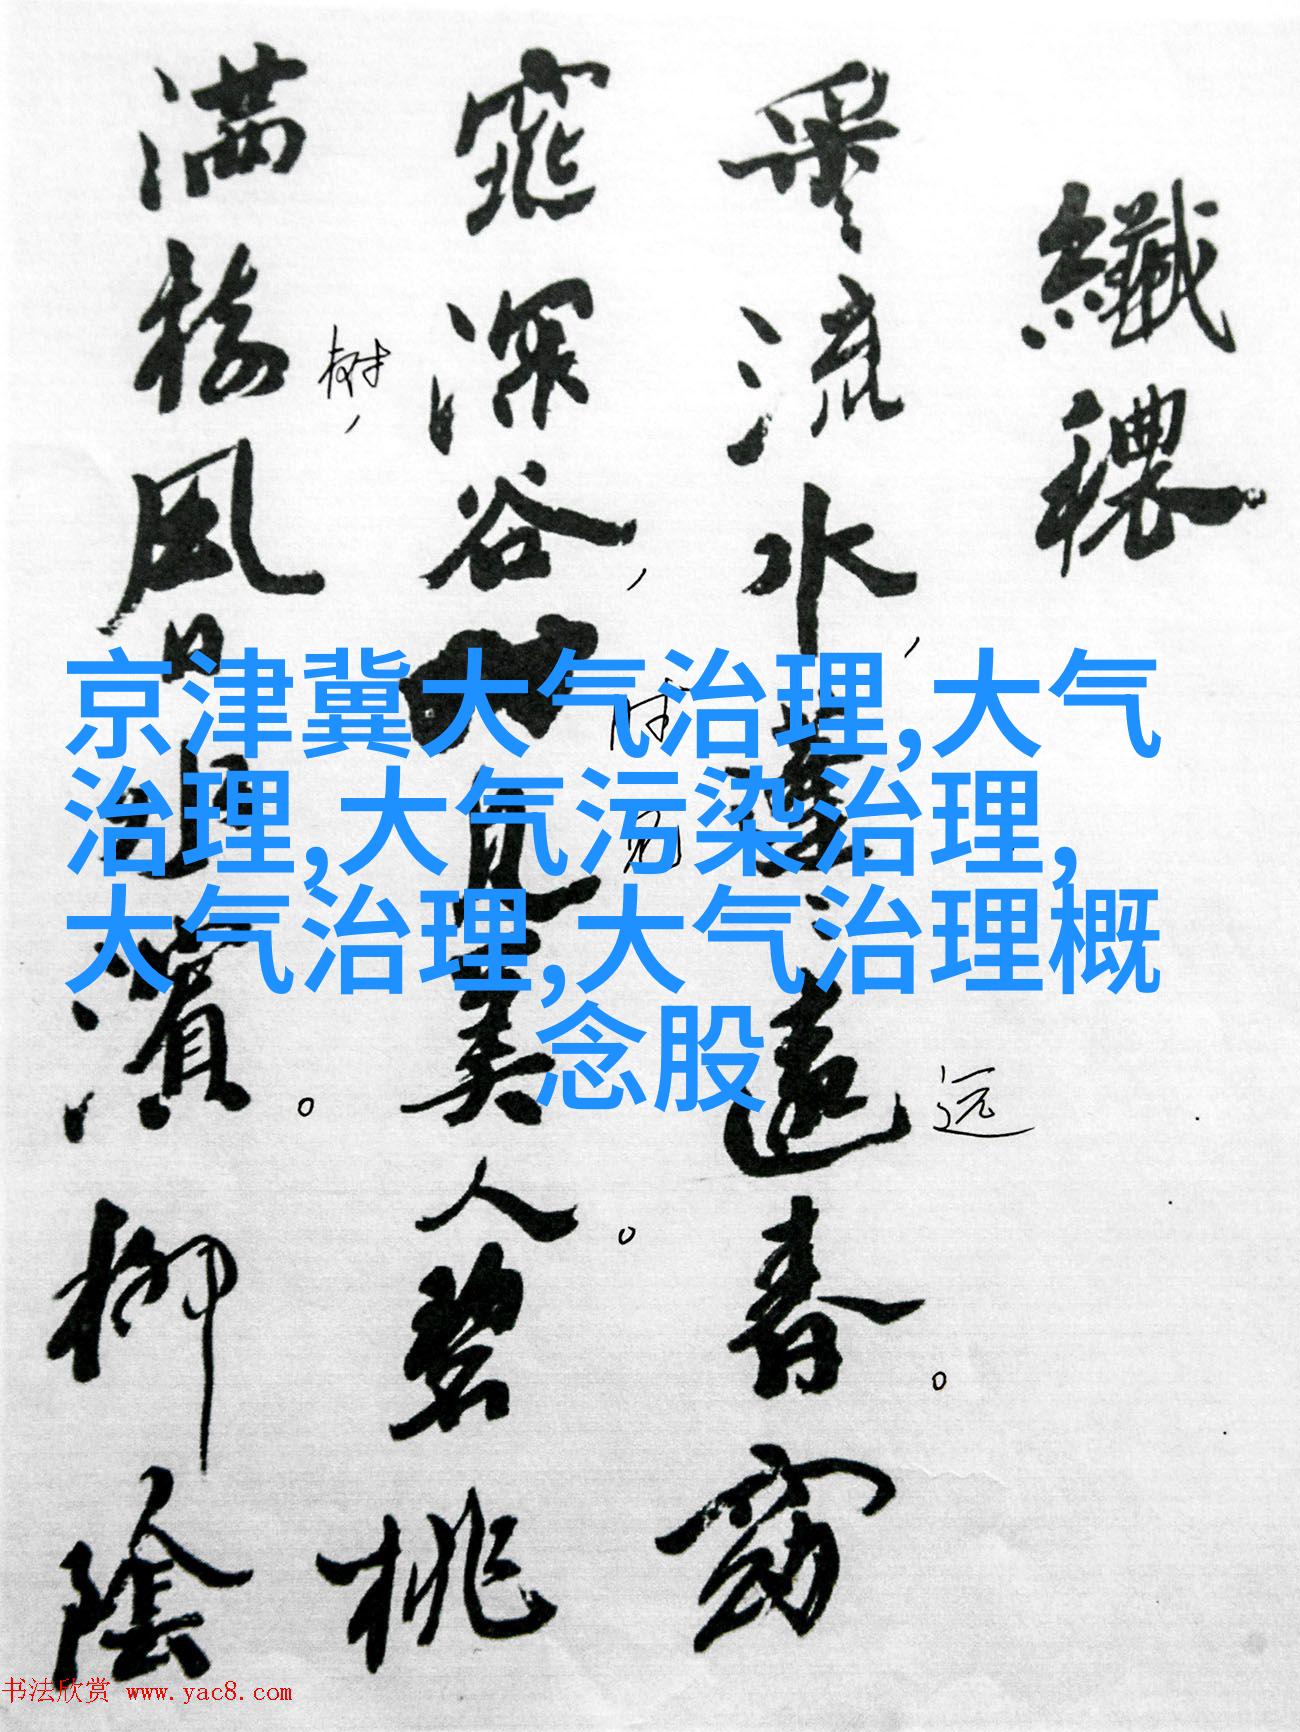 纖穠
采流水,蓬蓬遠春。窈
窕深谷,時見美人。碧桃
满樹,風日水濱。柳陰
树,
时
见
远
京津冀大气治理,大气
治理,大气污染治理,
大气治理,大气治理概
念股
书法欣赏 www.yac8.com